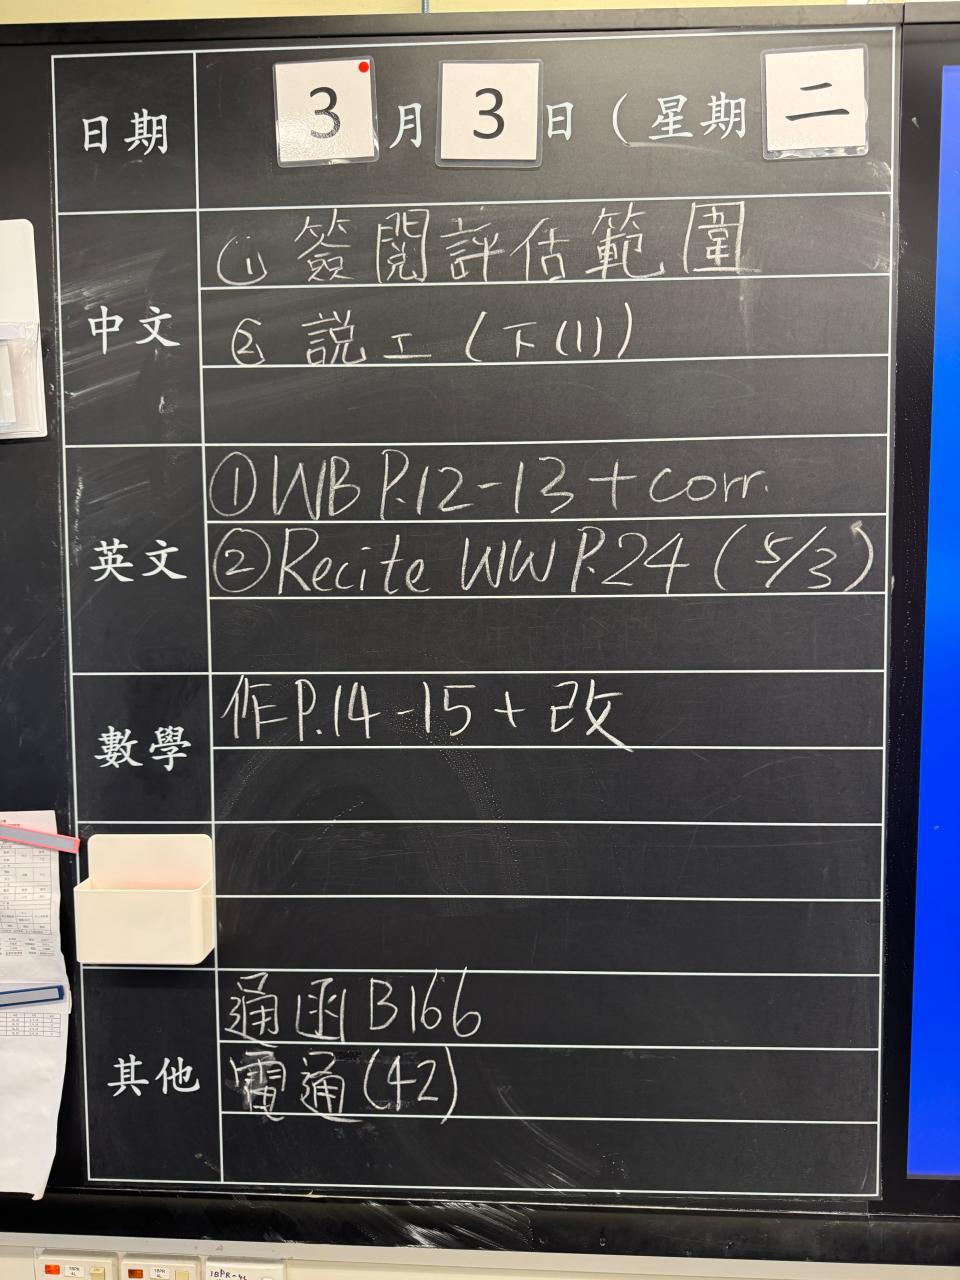 日期 3 月 3 日 (星期 二
中文
① 簽閱評估範圍
② 説工 (下(1))
英文
① WB P.12-13 + corr.
② Recite WW P.24 (5/3)
數學
作P.14-15 + 改
其他
通函B166
電通(42)